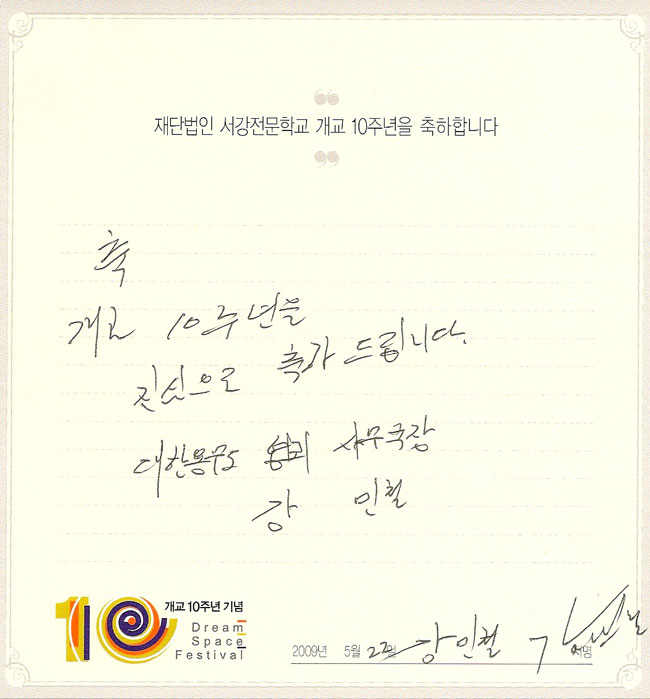 재단법인 서강전문학교 개교 10주년을 축하합니다
축
개교 10주년을
진심으로 축하 드립니다.
대한용무도 협회 사무국장
강 인철
10
개교 10주년 기념
Dream
Space
Festival
2009년 5월 22일 강인철 서명